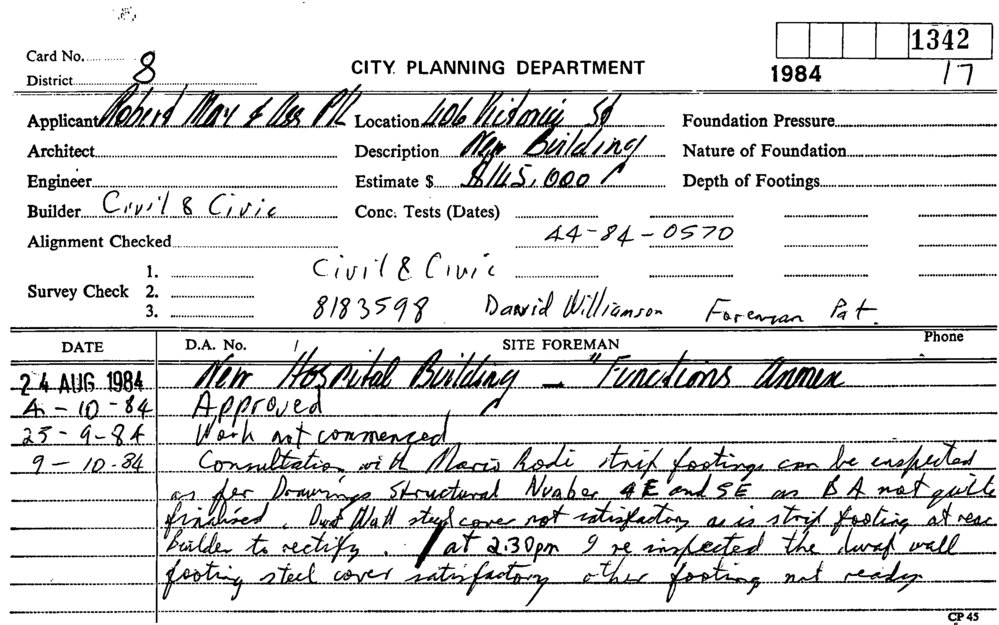 1342
Card No. 8
CITY PLANNING DEPARTMENT
1984 17
District
Applicant Robert May & Ass P/L Location 406 Victoria St Foundation Pressure
Architect Description New Building Nature of Foundation
Engineer Estimate $ $145,000 Depth of Footings
Builder Civil & Civic Conc. Tests (Dates)
Alignment Checked 44-84-0570
1. Civil & Civic
Survey Check 2.
3. 8183598 David Williamson Foreman Pat.
DATE D.A. No. SITE FOREMAN Phone
24 AUG 1984 New Hospital Building - "Functions Annex
4-10-84 Approved
25-9-84 Work not commenced
9-10-84 Consultation with Mario Rodi strip footings can be inspected
as per Drawings Structural Number 4E and 5E as BA not quite
finalised. Dwarf Wall steel cover not satisfactory as is strip footing at rear
builder to rectify. at 2.30pm I re inspected the dwarf wall
footing steel cover satisfactory other footing not ready
CP 45